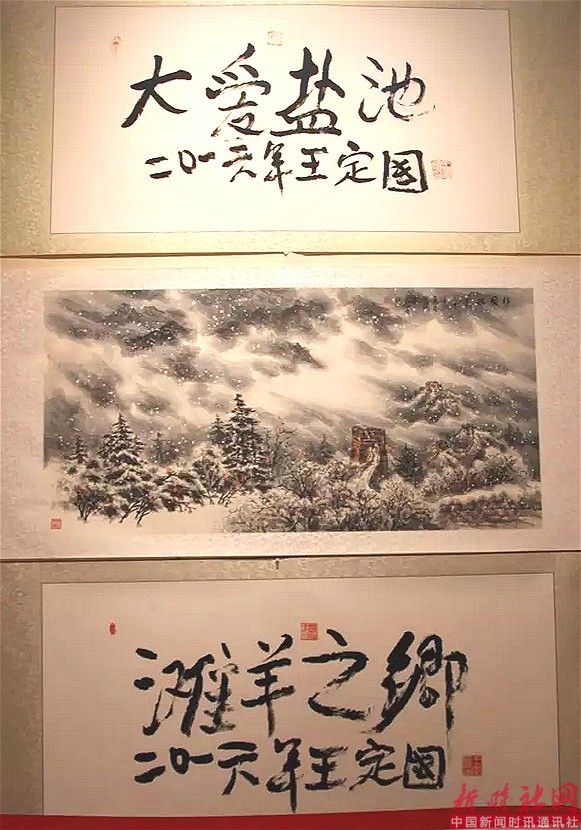 大爱盐池
二〇一六年王定国
滩羊之鄉
二〇一六年王定国
新时社网
中国新闻时讯通讯社